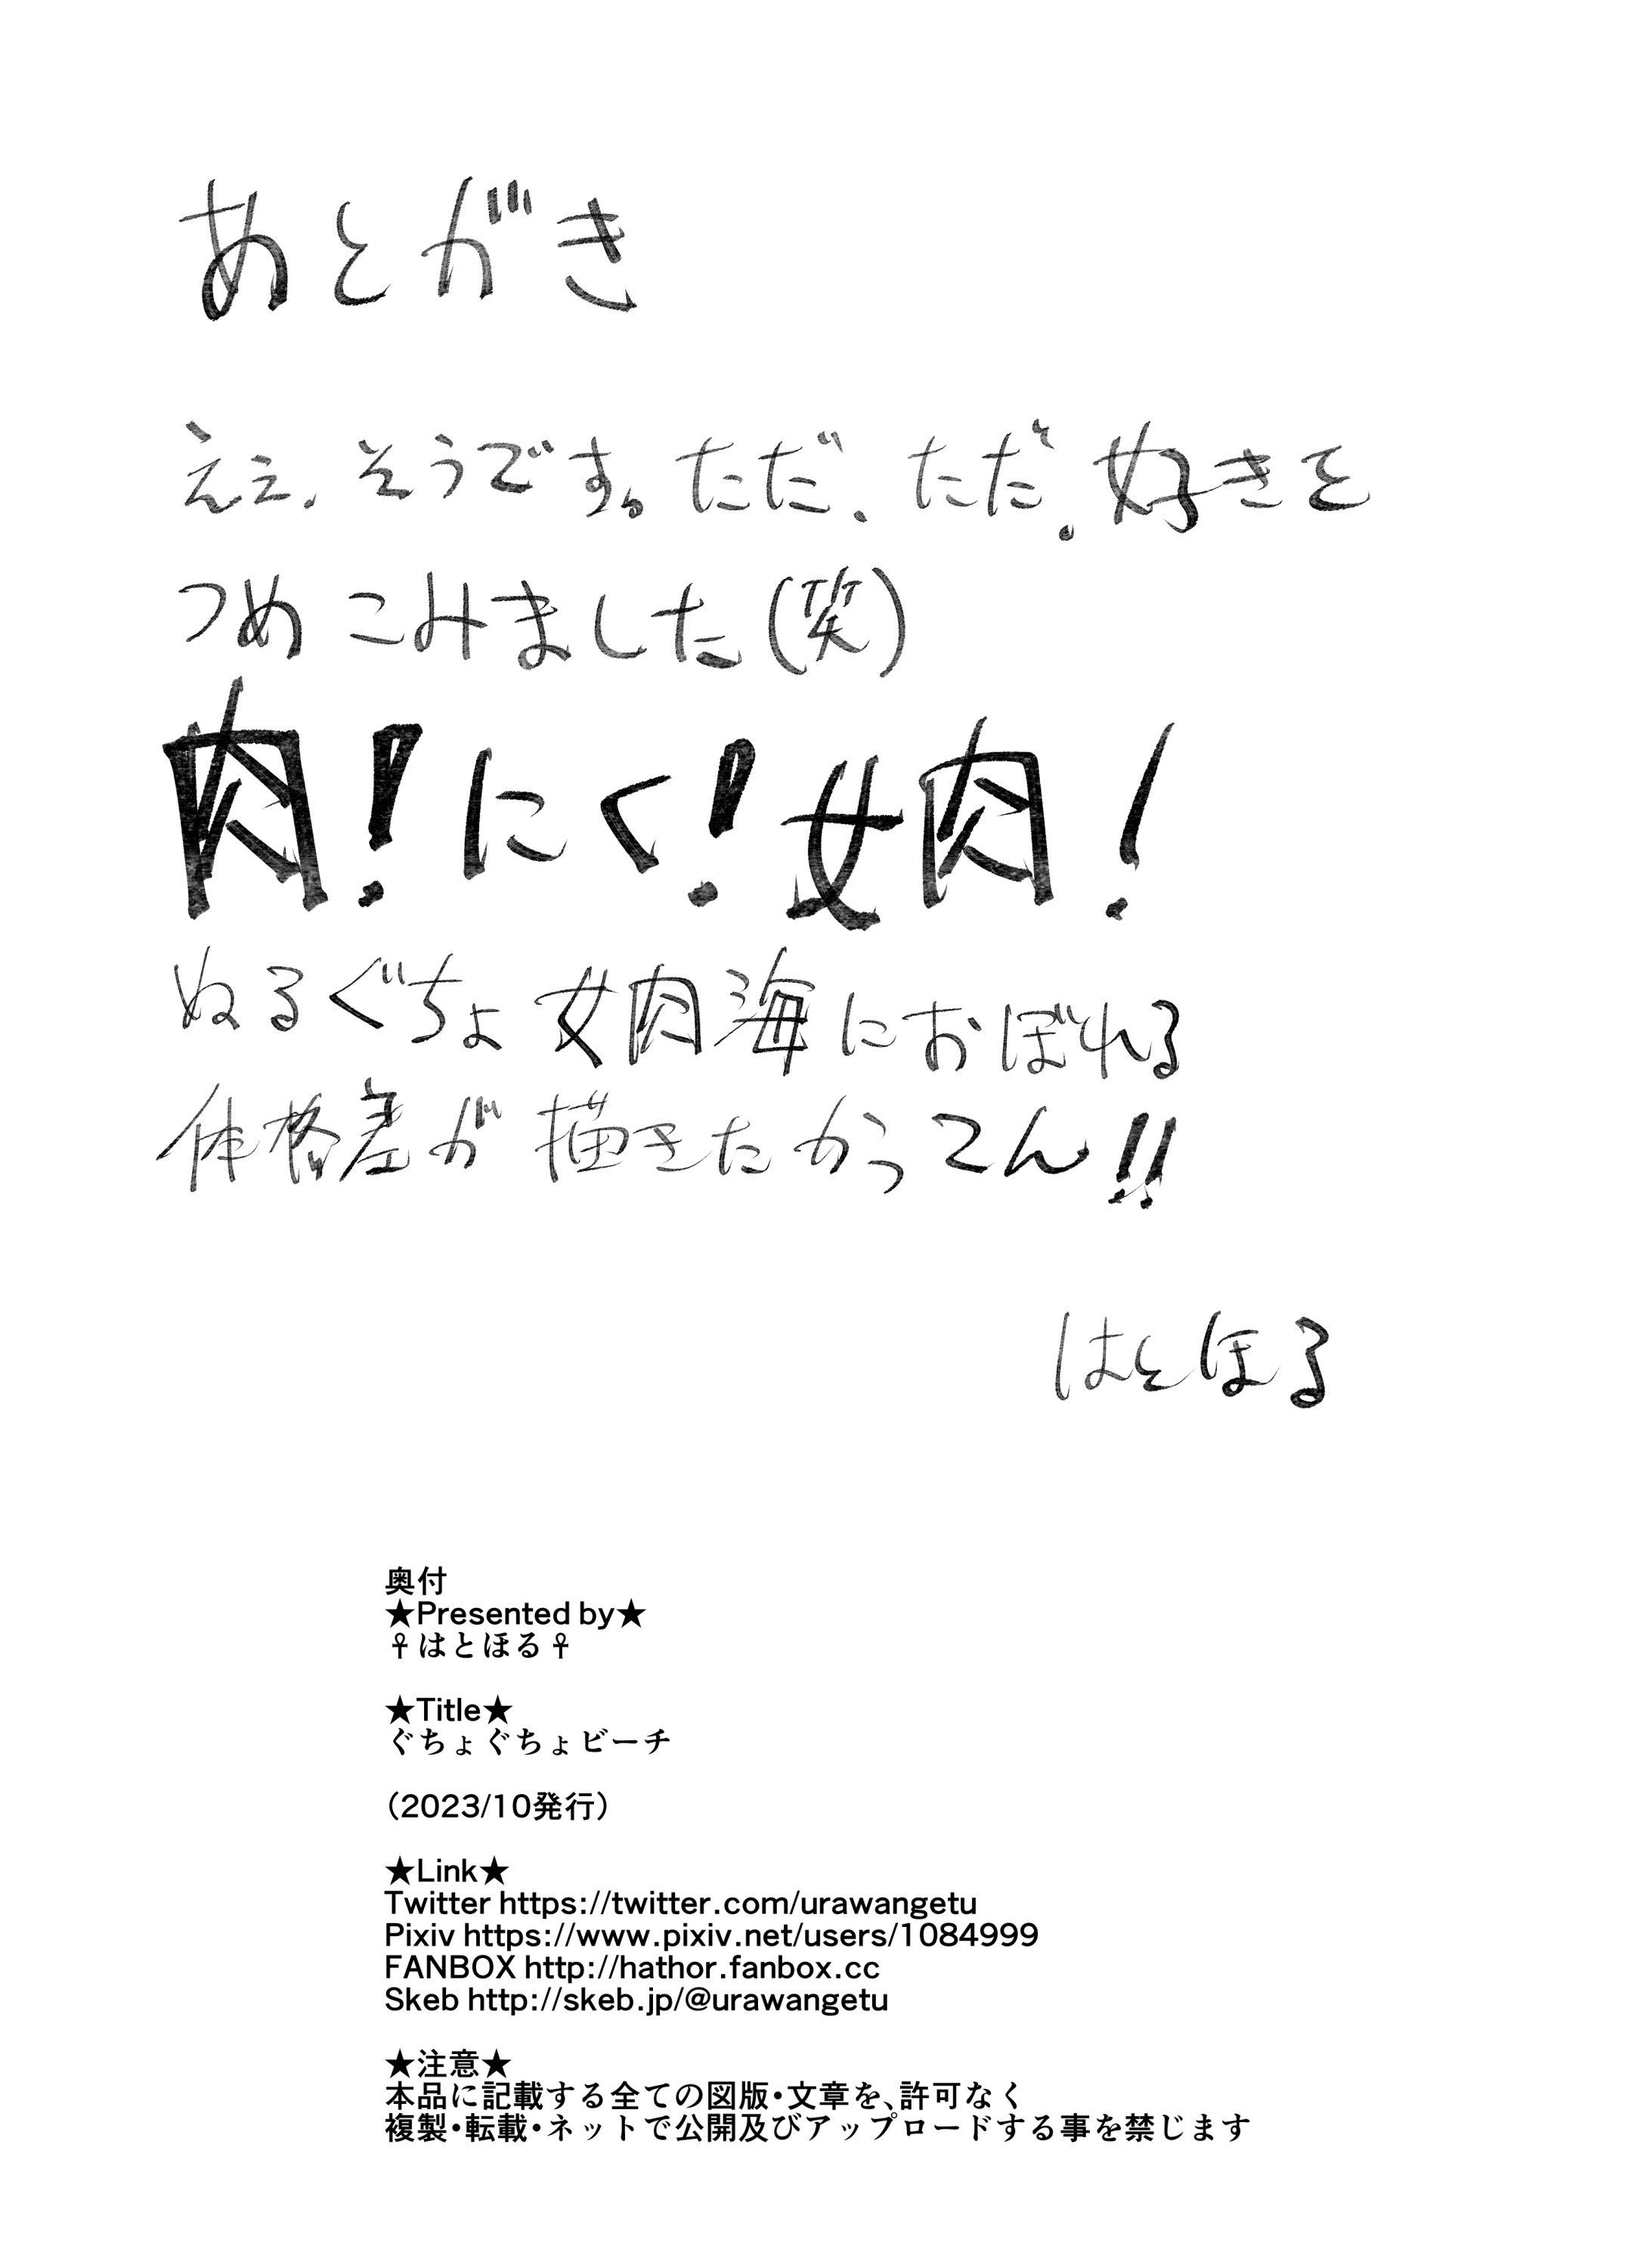 あとがき
ええ、そうです。ただ、ただ、好きを
つめこみました(笑)
肉!にく!女肉!
ぬるぐちょ女肉海におぼれる
体格差が描きたかってん!!
はとほる
奥付
★Presented by★
☥はとほる☥
★Title★
ぐちょぐちょビーチ
(2023/10発行)
★Link★
Twitter https://twitter.com/urawangetu
Pixiv https://www.pixiv.net/users/1084999
FANBOX http://hathor.fanbox.cc
Skeb http://skeb.jp/@urawangetu
★注意★
本品に記載する全ての図版・文章を、許可なく
複製・転載・ネットで公開及びアップロードする事を禁じます